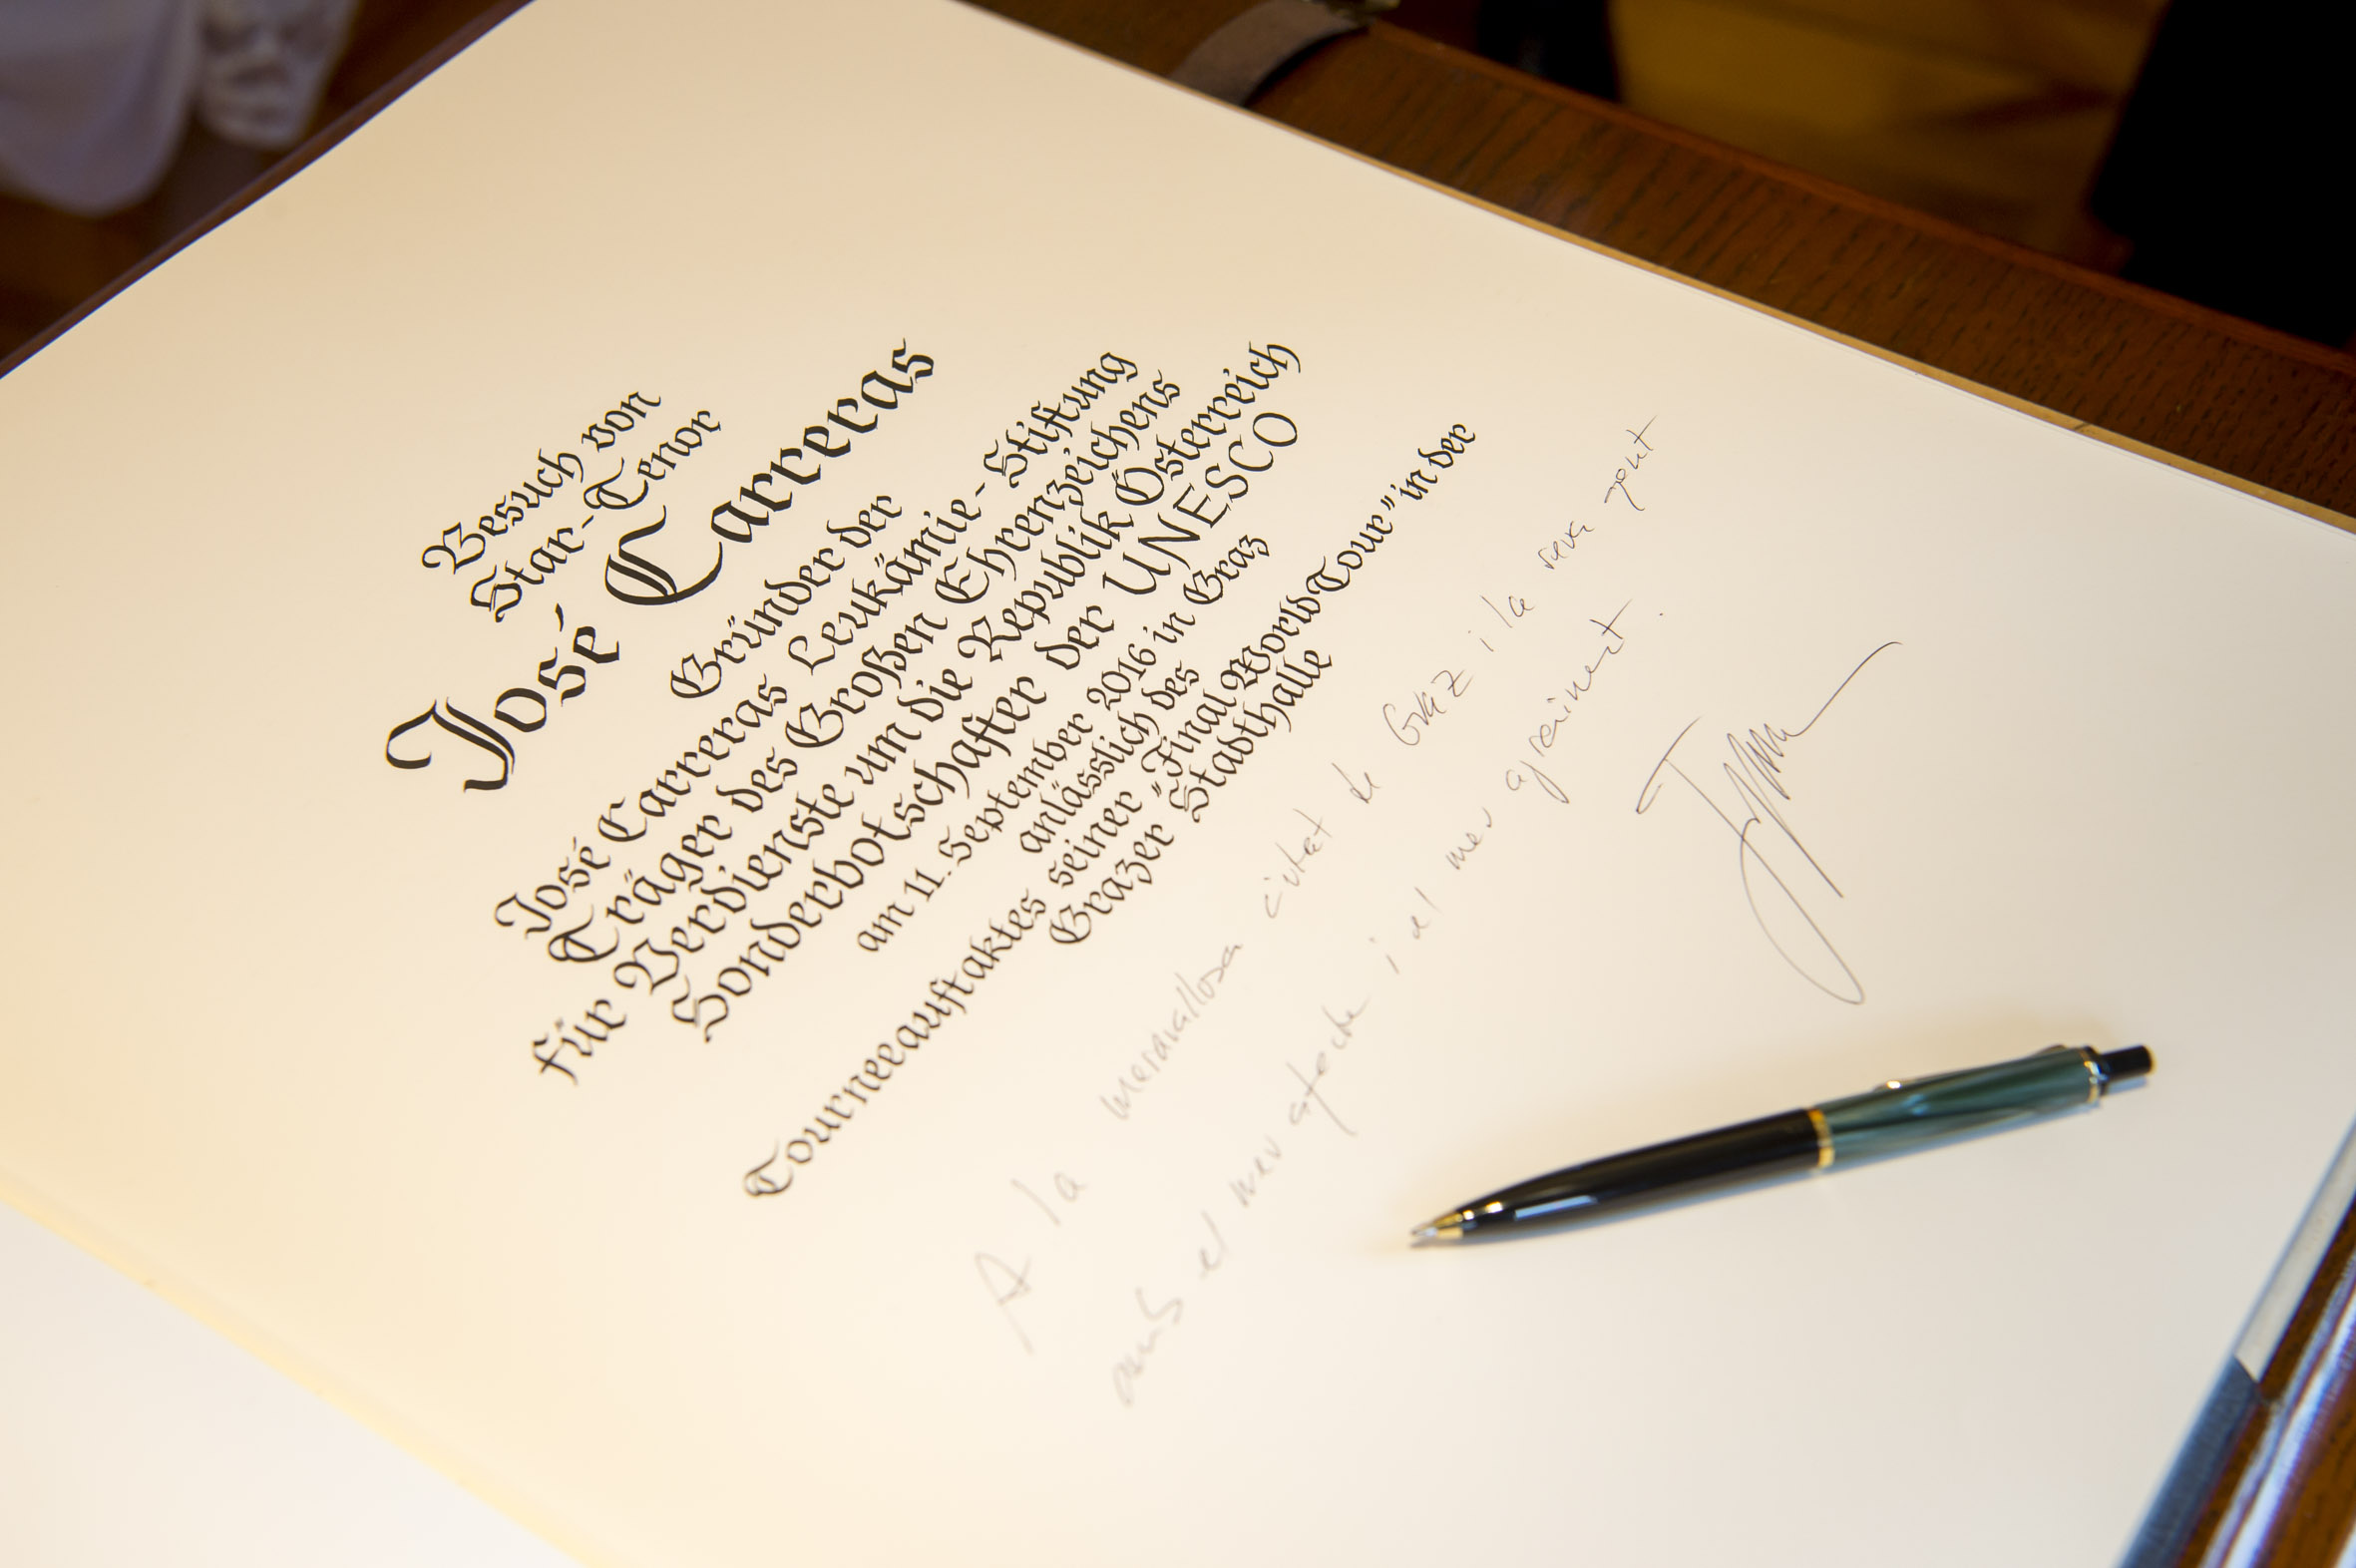 Besuch von
Star-Tenor
José Carreras
Gründer der
José Carreras Leukämie-Stiftung
Träger des Großen Ehrenzeichens
für Verdienste um die Republik Österreich
Sonderbotschafter der UNESCO
am 11. September 2016 in Graz
anlässlich des
Tourneeauftaktes seiner "Final World Tour" in der
Grazer Stadthalle
A la meravallosa ciutat de Graz i la seva gent
amb el meu afecte i el meu agraiment.